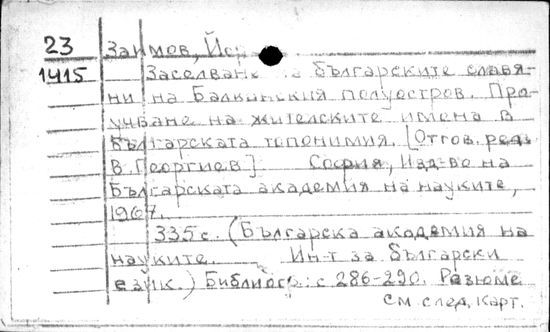 23 Заимов, Йор
1415 Заселване на българските славя-
ни на Балканския полуостров. Про-
учване на жителските имена в
българската топонимия. [Отгов. ред.
В. Георгиев] София, Изд-во на
Българската академия на науките,
1967.
335 с. (Българска академия на
науките. Ин-т за български
език.) Библиогр.: с 286-290. Резюме
см. след. карт.